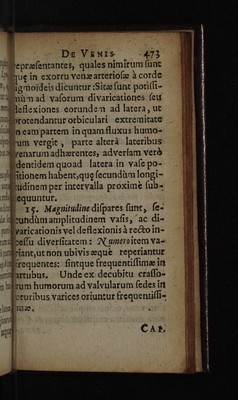 DE VENIS. 473
repræsentantes, quales nimirum sunt
quę in exortu venæ arteriosæ à corde
sigmoïdeis dicuntur : Sitæ sunt potissi-
mùm ad vasorum divaricationes seu
deflexiones eorundem ad latera, ut
protendantur orbiculari extremitate
in eam partem in quam fluxus humo-
rum vergit, parte alterâ lateribus
venarum adhærentes, adversam verò
identidem quoad latera in vase po-
sitionem habent, quę secundùm longi-
tudinem per intervalla proximè sub-
sequuntur.
15. Magnitudine dispares sunt, se-
cundùm amplitudinem vasis, ac di-
varicationis vel deflexionis à recto in-
cessu diversitatem : Numero item va-
riant, ut non ubivis æquè reperiantur
frequentes: sintque frequentissimæ in
artubus. Unde ex decubitu crasso-
rum humorum ad valvularum sedes in
cruribus varices oriuntur frequentissi-
mæ.
CAP.